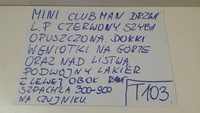 MINI CLUBMAN DRZWI
L.P CZERWONY SZYBA
OPUSZCZONA. DOŁKI
WGNIOTKI NA GÓRZE
ORAZ NAD LISTWĄ
PODWÓJNY LAKIER
Z LEWEJ OBOK RAMY
SZPACHLA 300-900
NA CZUJNIKU.
T103